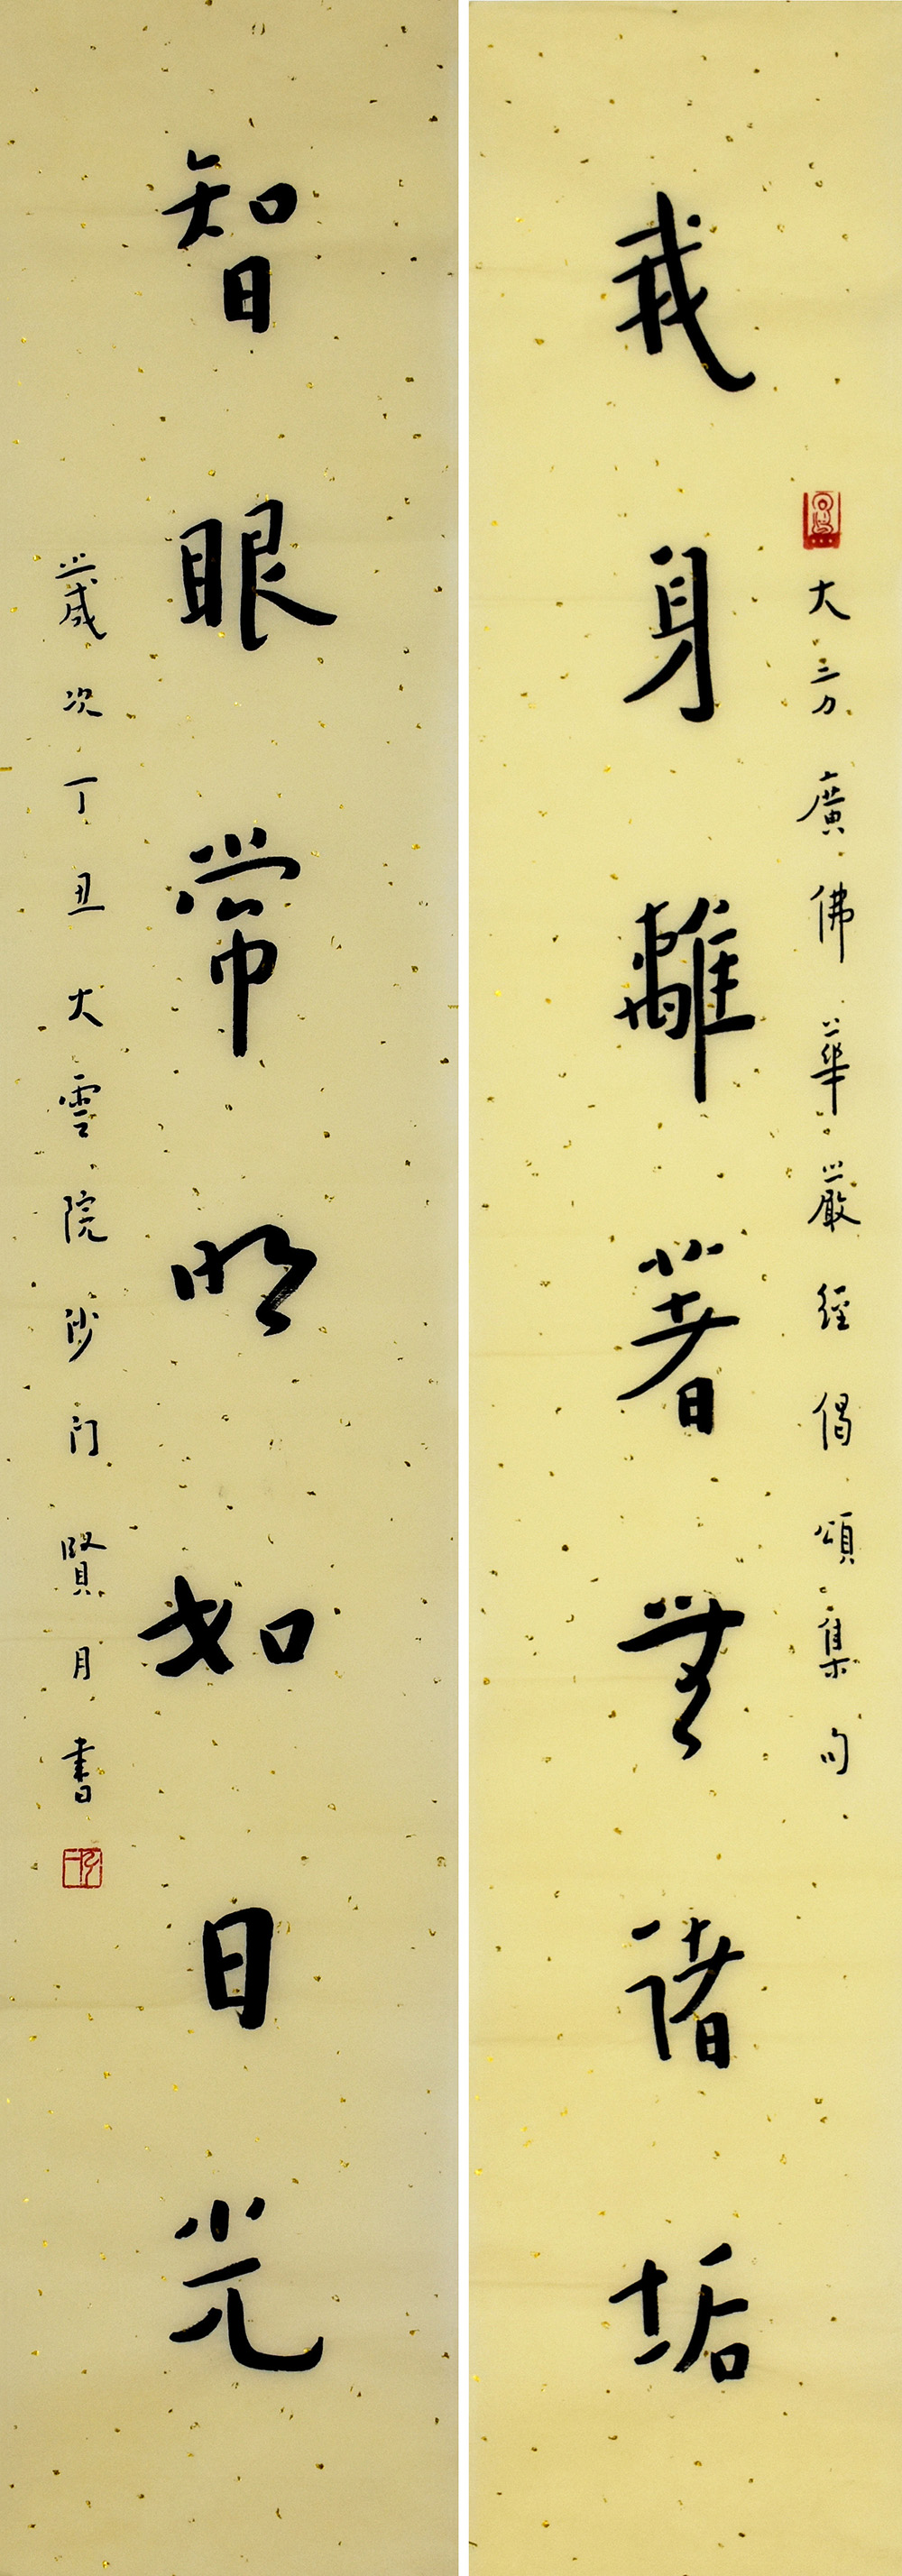 大方廣佛華嚴經偈頌集句
戒身離著無諸垢
智眼常明如日光
歲次丁丑大雲院沙门賢月書